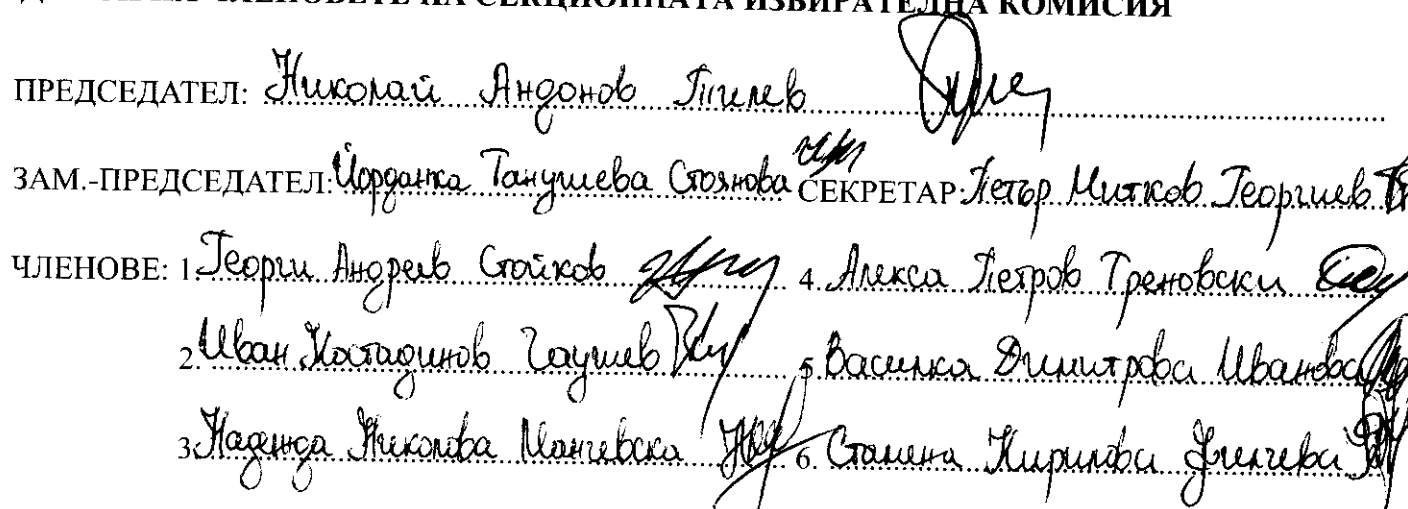 ЧЛЕНОВЕТЕ НА СЕКЦИОННАТА ИЗБИРАТЕЛНА КОМИСИЯ
ПРЕДСЕДАТЕЛ: Николай Андонов
ЗАМ.-ПРЕДСЕДАТЕЛ: Йорданка Танушева Стоянова СЕКРЕТАР: Петър Митков Георгиев
ЧЛЕНОВЕ: 1. Георги Андреев Стойков 4. Алекса Петров Треновски
2. Иван Костадинов Чаушев 5. Василка Димитрова Иванова
3. Надежда Николова Манчевска 6. Стамена Кирилова